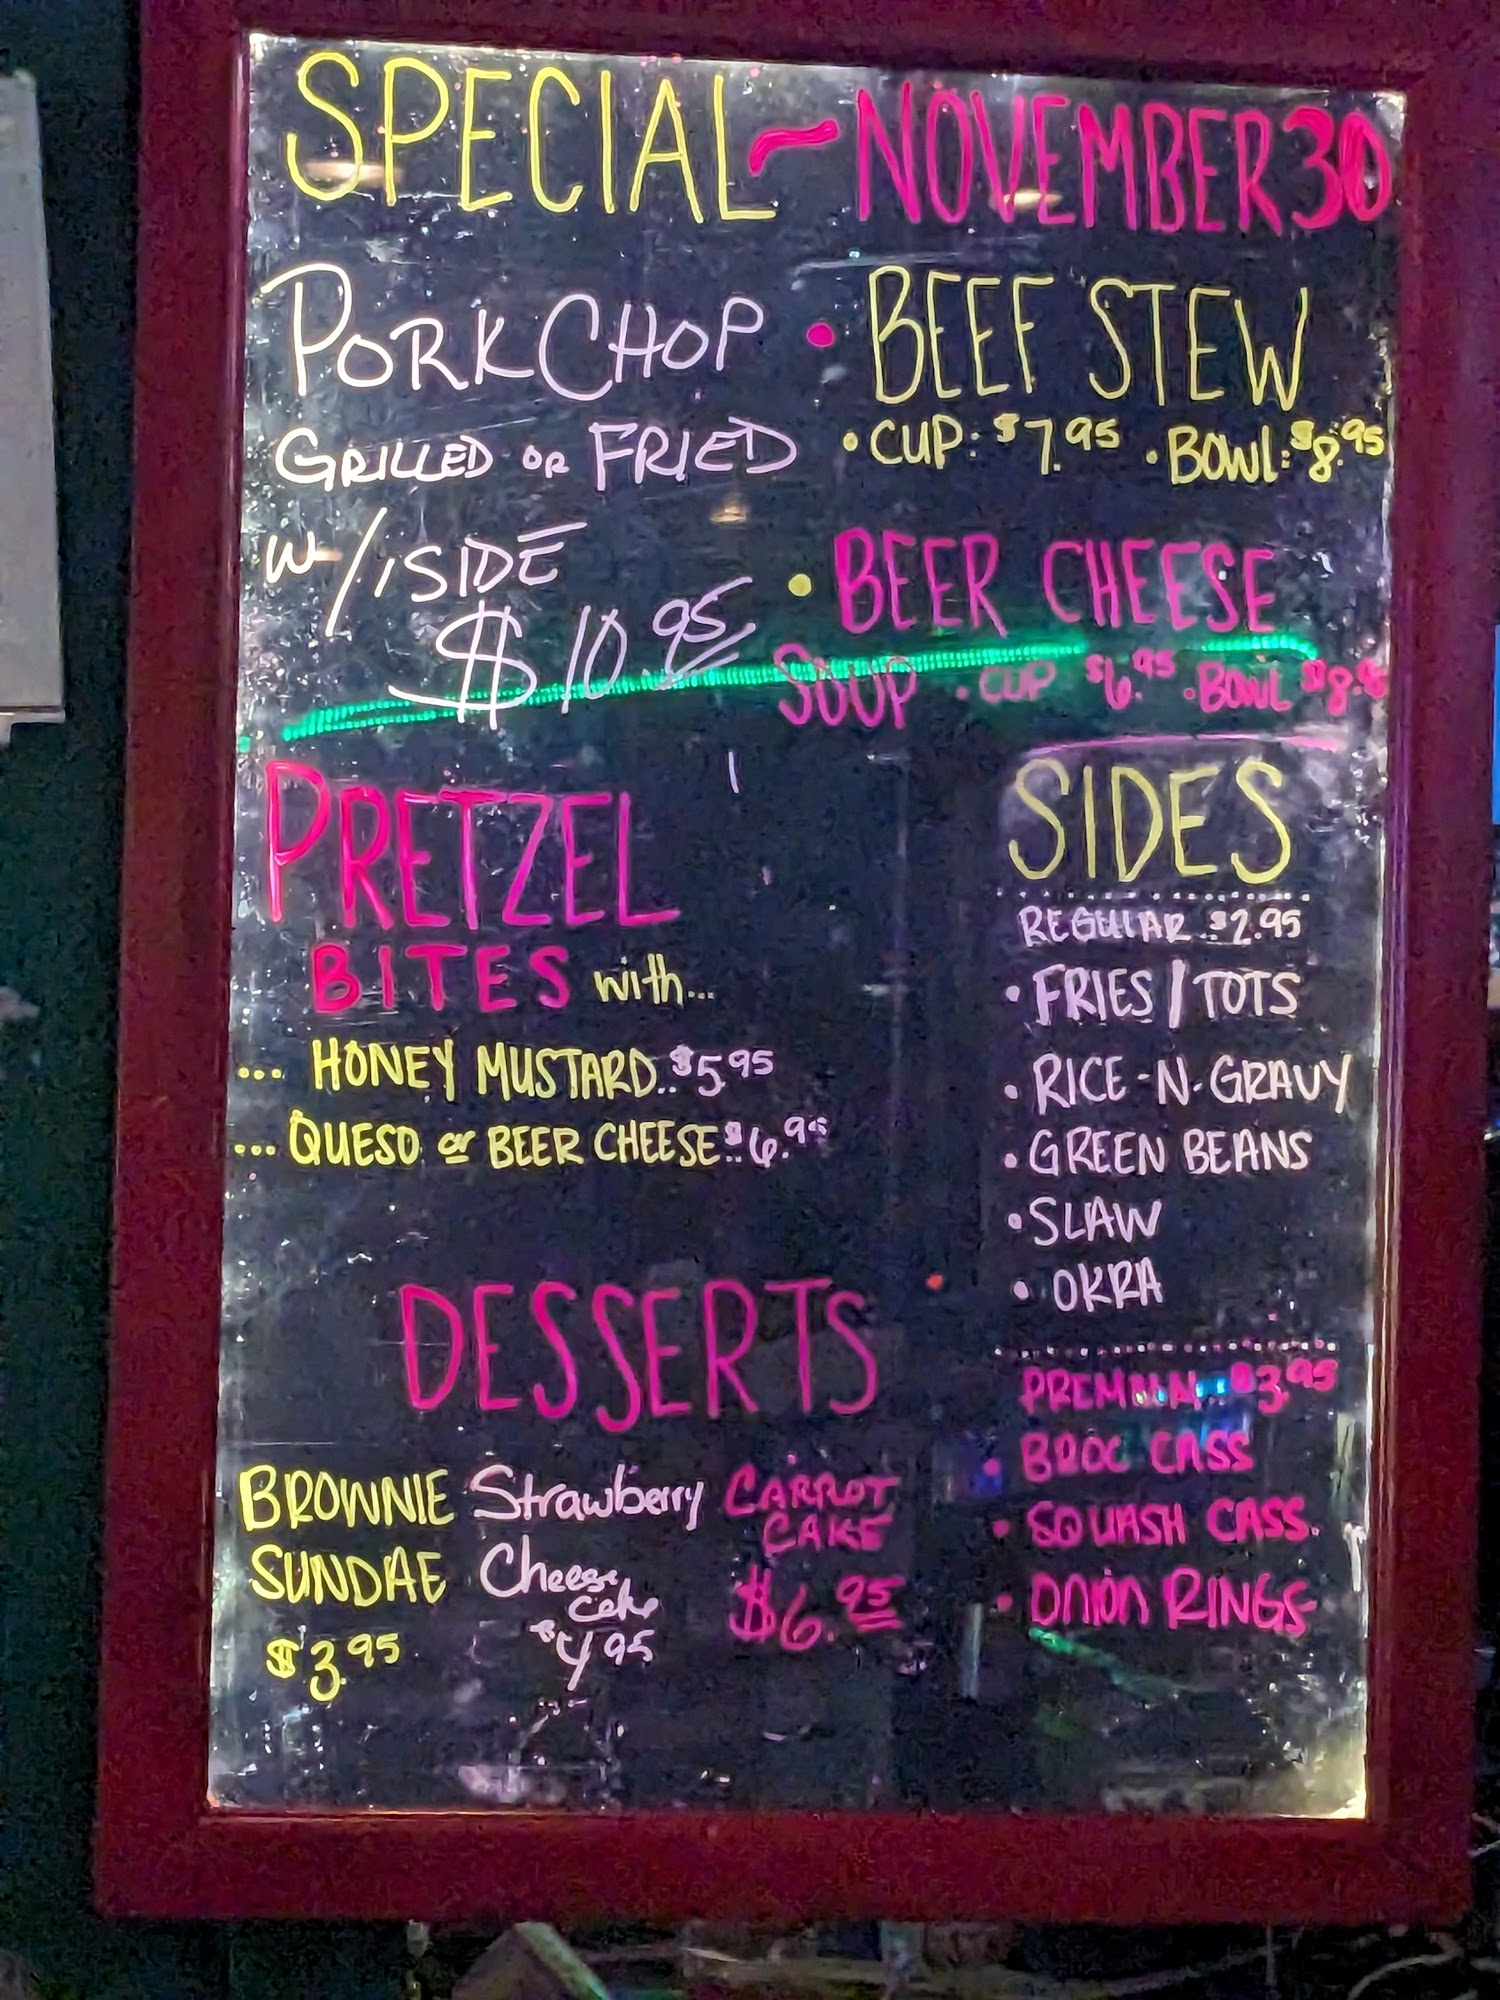 SPECIAL ~ NOVEMBER 30
PORK CHOP
GRILLED OR FRIED
W/ 1 SIDE
$10.95
• BEEF STEW
• CUP: $7.95 • BOWL: $8.95
• BEER CHEESE
SOUP • CUP $6.95 • BOWL $8.
PRETZEL
BITES with...
... HONEY MUSTARD..$5.95
... QUESO or BEER CHEESE..$6.95
SIDES
REGULAR..$2.95
• FRIES/TOTS
• RICE-N-GRAVY
• GREEN BEANS
• SLAW
• OKRA
PREMIUM..$3.95
• BROC CASS
• SQUASH CASS.
• ONION RINGS
DESSERTS
BROWNIE
SUNDAE
$3.95
Strawberry
Cheese
Cake
$4.95
CARROT
CAKE
$6.95